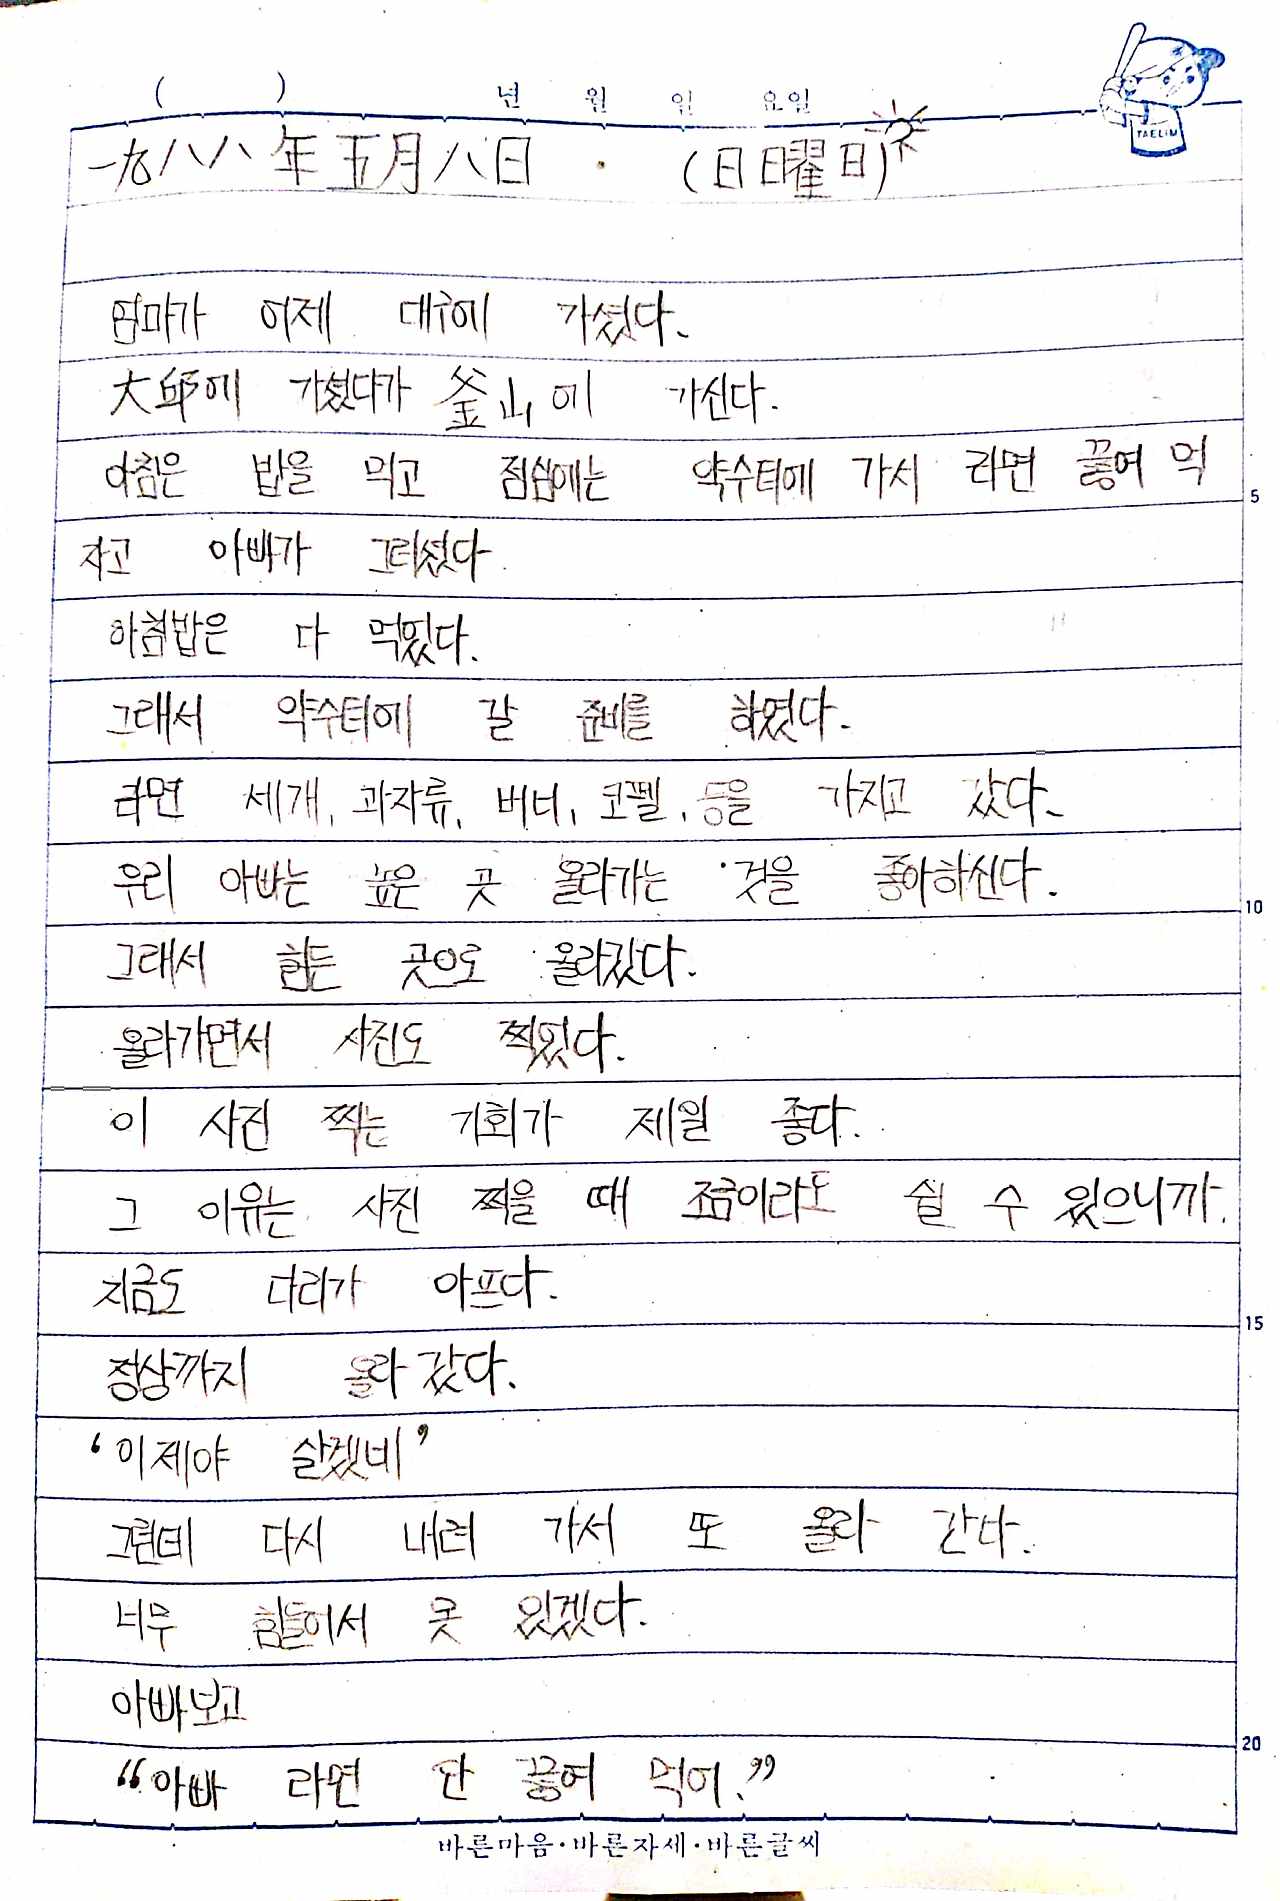 ( ) 년 월 일 요일
TAELIM
一九八八年 五月 八日 · (日曜日)
엄마가 어제 대구에 가셨다.
大邱에 가셨다가 釜山에 가신다.
아침은 밥을 먹고 점심에는 약수터에 가서 라면 끓여 먹
5
자고 아빠가 그러셨다
아침밥은 다 먹었다.
그래서 약수터에 갈 준비를 하였다.
라면 세개, 과자류, 버너, 코펠, 등을 가지고 갔다.
우리 아빠는 높은 곳 올라가는 것을 좋아하신다.
10
그래서 힘든 곳으로 올라갔다.
올라가면서 사진도 찍었다.
이 사진 찍는 기회가 제일 좋다.
그 이유는 사진 찍을 때 조금이라도 쉴 수 있으니까.
지금도 다리가 아프다.
15
정상까지 올라 갔다.
‘이제야 살겠네’
그런데 다시 내려 가서 또 올라 간다.
너무 힘들어서 못 있겠다.
아빠보고
20
“아빠 라면 안 끓여 먹어.”
바른마음·바른자세·바른글씨